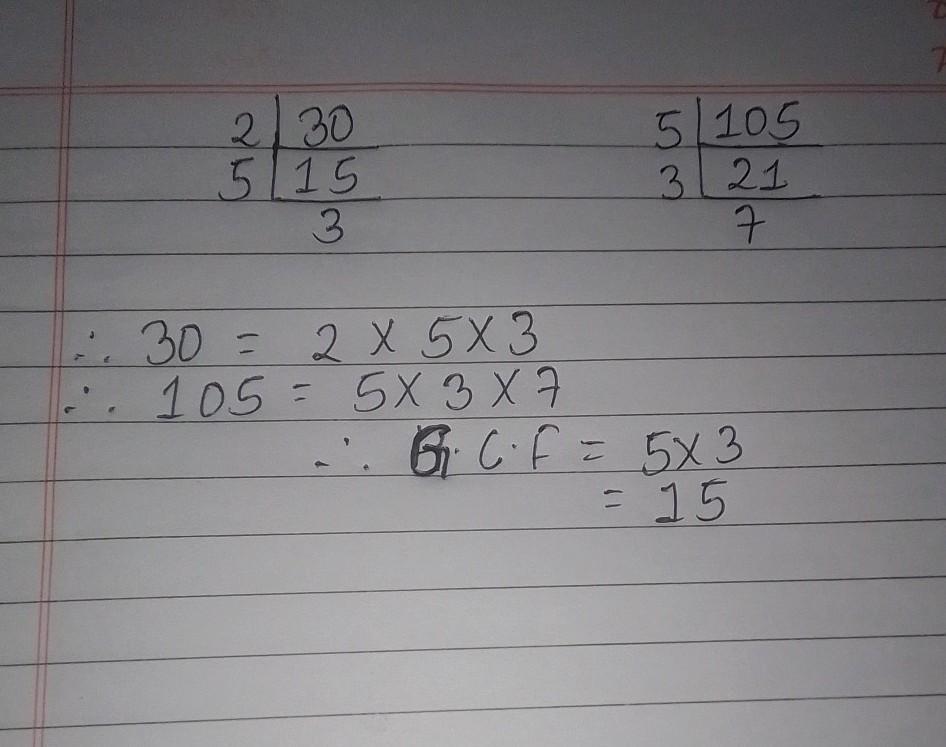 2 | 30 5 | 105
5 | 15 3 | 21
3 7
∴ 30 = 2 × 5 × 3
∴ 105 = 5 × 3 × 7
∴ G.C.F = 5 × 3
= 15